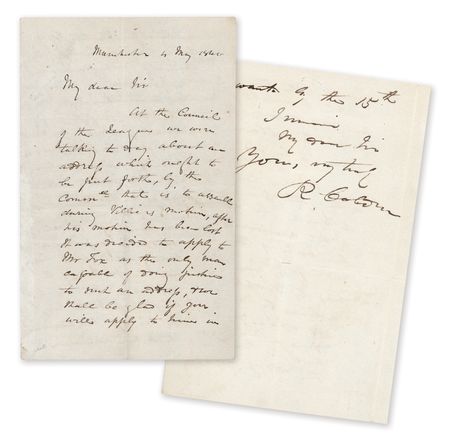 Manchester 4 May 1841
My dear Sir
At the Council
of the League we were
talking to day about an
address which ought to
be put forth, by the
Commee that is to assemble
during Villiers's motion, after
his motion has been lost
It was decided to apply to
Mr Fox as the only man
capable of doing justice
to such an address, & we
shall be glad if you
will apply to him in
want by the 15th
I remain
My dear Sir
Yours, very truly
R. Cobden